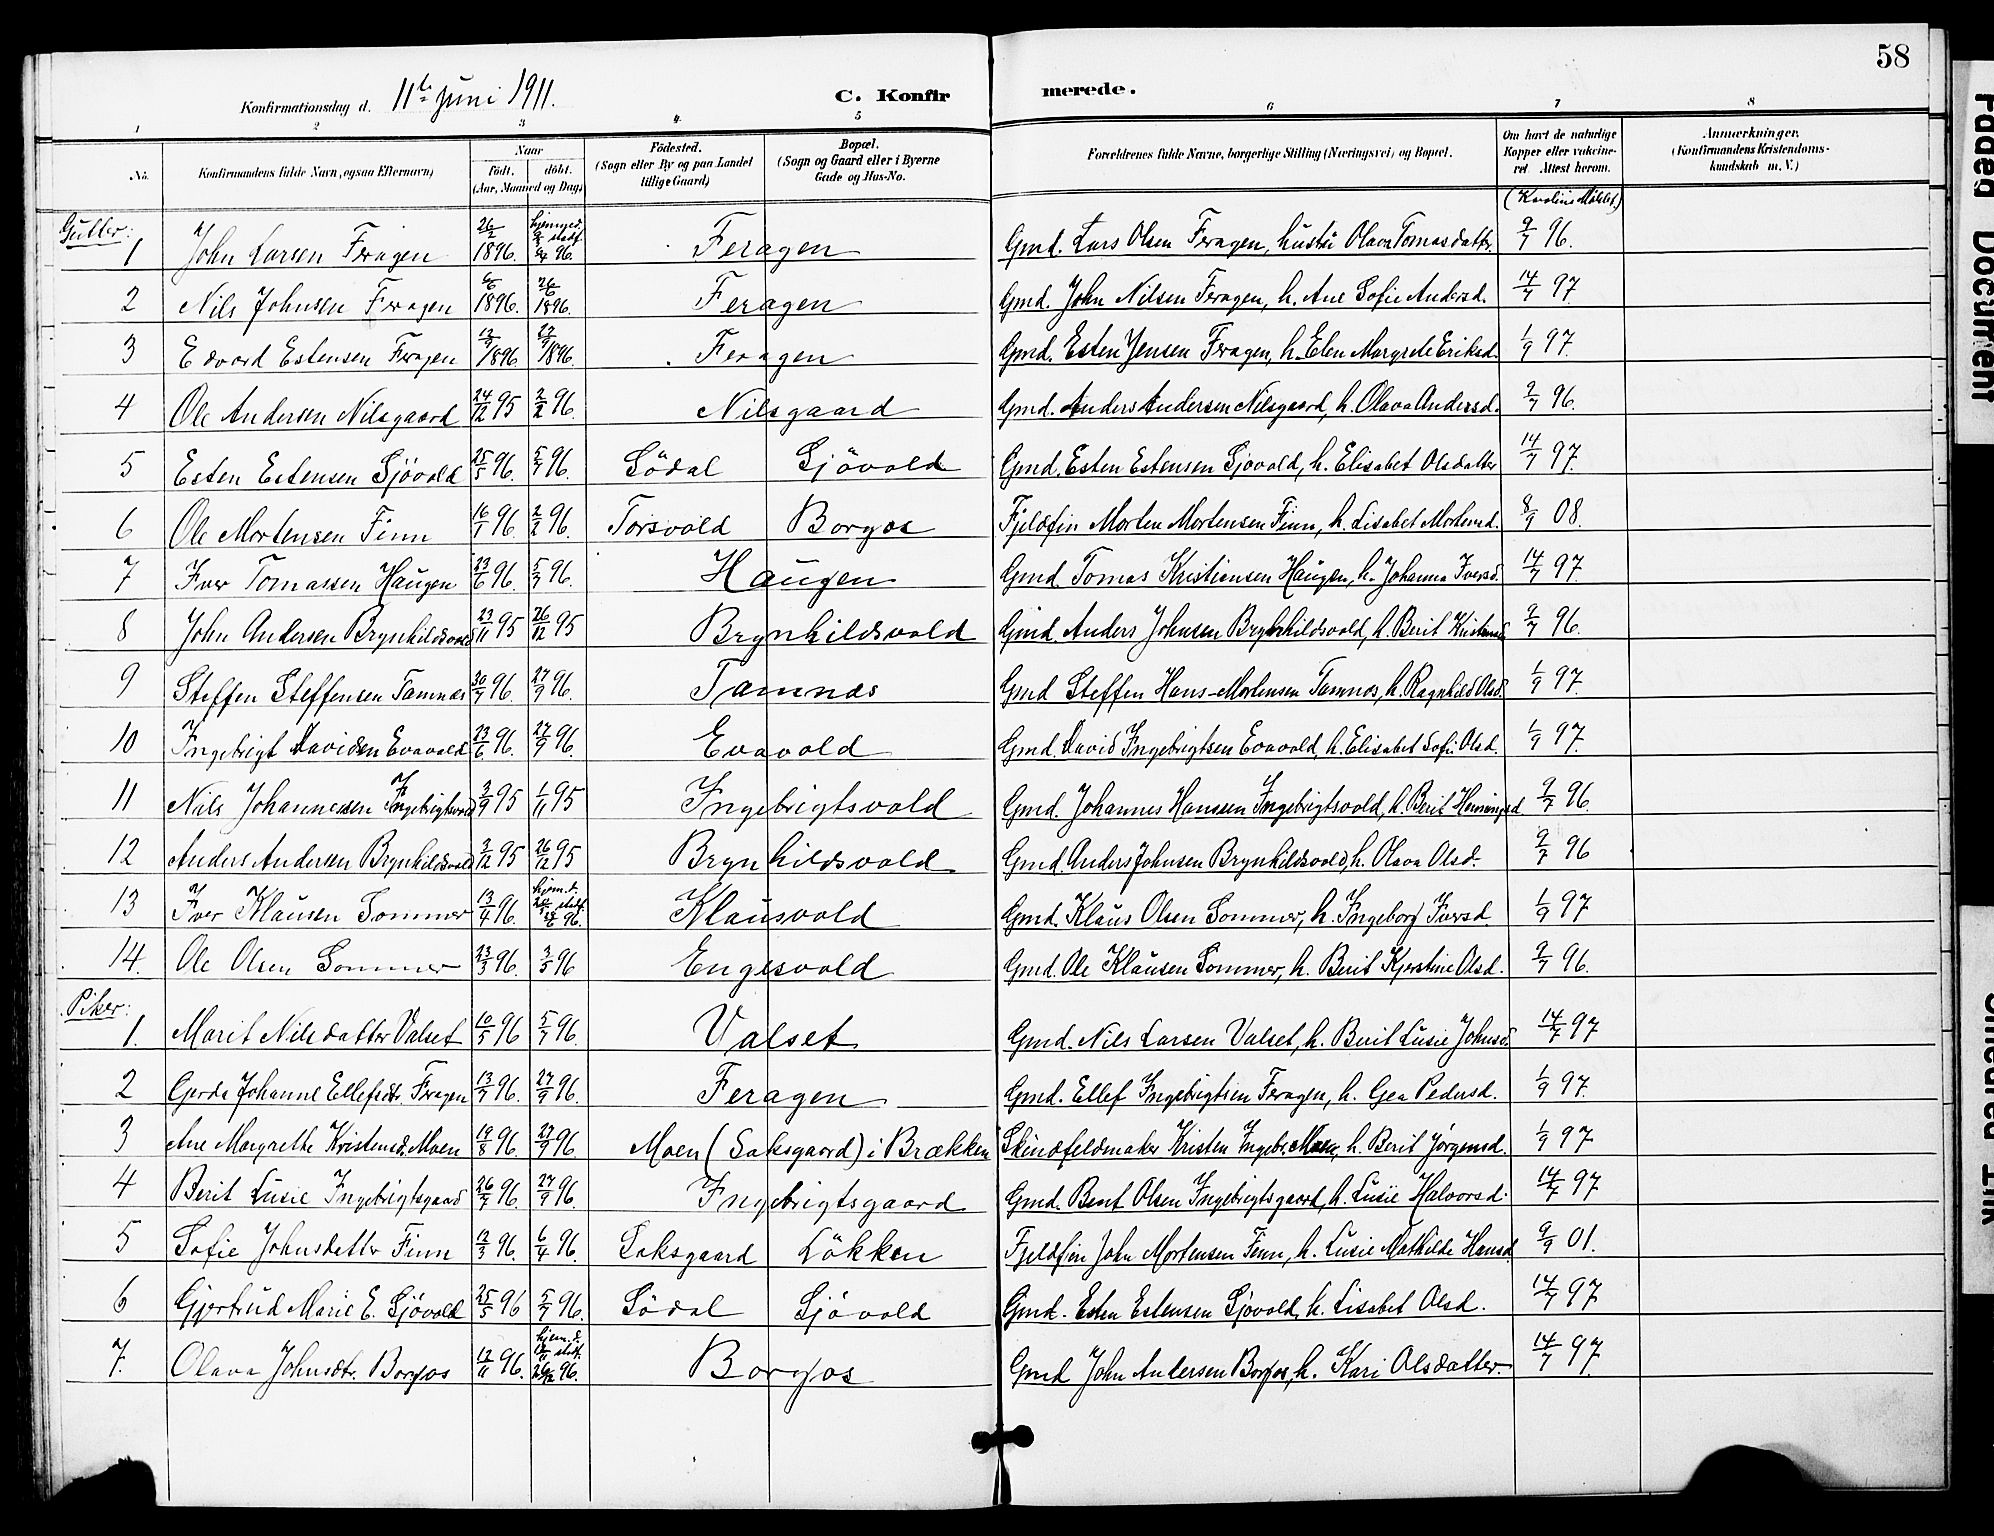 58
Konfirmationsdag d. 11te juni 1911.
C. Konfir
merede.
1 2 3 4 5 6 7 8
No. Konfirmandens fulde Navn, ogsaa Efternavn) Naar födt. döbt. (Aar, Maaned og Dag) Födested. (Sogn eller By og paa Landet tillige Gaard) Bopæl. (Sogn og Gaard eller i Byerne Gade og Hus-No. Forældrenes fulde Navne, borgerlige Stilling (Næringsvei) og Bopæl. Om havt de naturlige Kopper eller vaksineret Attest herom. Anmerkninger. (Konfirmandens Kristendomskundskab m. V.)
Gutter:
1 John Larsen Feragen 26/2 1896. 96. Feragen Gmd. Lars Olsen Feragen, hustru Olava Tomasdatter. 9/7 96.
2 Nils Johnsen Feragen 6/6 1896. 1896. Feragen Gmd. John Nilsen Feragen, h. Ane Sofie Andersd. 14/7 97
3 Edvard Estensen Feragen 1896. 1896. Feragen Gmd. Esten Jensen Feragen, h. Elen Margrete Eriksd. 1/9 97.
4 Ole Andersen Nilsgaard 24/12 95 2/2 96. Nilsgaard Gmd. Anders Andersen Nilsgaard, h. Olava Andersd. 9/7 96.
5 Esten Estensen Sjövold 25/5 96. 5/7 96. Södal Sjövold Gmd. Esten Estensen Sjövold, h. Elisabet Olsdatter 14/7 97.
6 Ole Mortensen Finn 16/1 96. 2/2 96. Torsvold Borgos Fjeldfin Morten Mortensen Finn, h. Lisabet Mortensd. 8/9 08.
7 Iver Tomassen Haugen 23/6 96. 5/7 96. Haugen Gmd. Tomas Kristiansen Haugen, h. Johanna Iversd. 14/7 97.
8 John Andersen Brynhildsvold 23/11 95 26/12 95 Brynhildsvold Gmd. Anders Johnsen Brynhildsvold, h. Berit Kristensd. 9/7 96.
9 Steffen Steffensen Tamnes 30/7 96. 27/9 96. Tamnes Gmd Steffen Hans-Mortensen Tamnes, h. Ragnhild Olsd. 1/9 97.
10 Ingebrigt Davidsen Evavold 23/6 96. 27/9 96. Evavold Gmd. David Ingebrigtsen Evavold, h. Elisabet Sofie Olsd. 1/9 97.
11 Nils Johannessen Ingebrigtsvold 3/9 95 1/11 95 Ingebrigtsvold Gmd. Johannes Hanssen Ingebrigtsvold, h. Berit Henningsd. 9/7 96.
12 Anders Andersen Brynhildsvold 3/12 95 26/12 95 Brynhildsvold Gmd. Anders Johnsen Brynhildsvold, h. Olava Olsd. 9/7 96
13 Iver Klausen Sommer 13/4 96. hjem.d. 96. Klausvold Gmd. Klaus Olsen Sommer, h. Ingeborg Iversd. 1/9 97
14. Ole Olsen Sommer 23/3 96. 3/5 96 Engesvold Gmd. Ole Klausen Sommer, h. Berit Kjerstine Olsd. 9/7 96.
Piker:
1. Marit Nilsdatter Valset 10/5 96 5/7 96. Valset Gmd. Nils Larsen Valset, h. Berit Lusie Johnsd. 14/7 97
2 Gerda Johanne Ellefsdtr. Feragen 13/7 96. 27/9 96. Feragen Gmd. Ellef Ingebrigtsen Feragen, h. Gea Pedersd. 1/9 97.
3 Ane Margrethe Kristensd. Moen 19/8 96. 27/9 96. Moen (Saksgaard) i Brækken Skindfeldmaker Kristen Ingebr. Moen, h. Berit Jørgensd. 1/9 97
4 Berit Lusie Ingebrigtsgaard 26/7 96. 27/9 96. Ingebrigtsgaard Gmd. Bent Olsen Ingebrigtsgaard, h. Lusie Halvorsd. 14/7 97
5 Sofie Johnsdatter Finn 12/3 96. 6/4 96. Saksgaard Lökken Fjeldfin John Mortensen Finn, h. Lusie Mathilde Hansd. 9/9 01.
6 Gjertrud Marie E. Sjövold 25/5 96 5/7 96. Södal Sjövold Gmd. Esten Estensen Sjövold, h. Lisabet Olsd. 14/7 97
7. Olava Johnsdtr. Borgos 12/11 96. hjem.d. 26/12 96. Borgos Gmd John Andersen Borgos, h. Kari Olsdatter. 14/7 97.
Faded Document
Smeared Ink